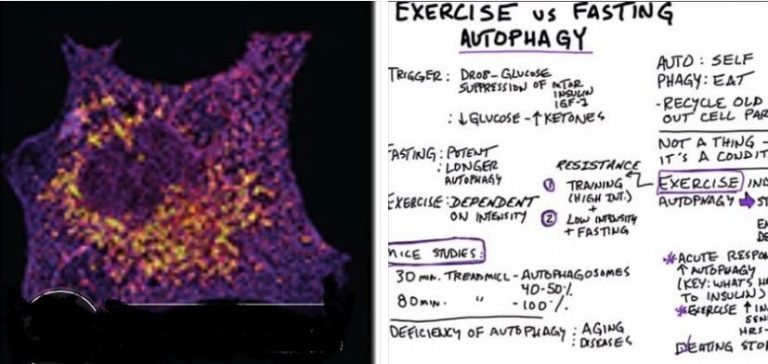 EXERCISE vs FASTING
AUTOPHAGY
TRIGGER: DROB-GLUCOSE
SUPPRESSION OF mTOR
INSULIN
IGF-1
: ↓GLUCOSE-↑KETONES
ASTING: POTENT
: LONGER
AUTOPHAGY
EXERCISE: DEPENDENT
ON INTENSITY
RESISTANCE
① TRAINING
(HIGH INT.)
+
② LOW INTENSITY
+ FASTING
MICE STUDIES:
30 MIN. TREADMILL - AUTOPHAGOSOMES
40-50%
80 MIN. " - 100%
DEFICIENCY OF AUTOPHAGY: AGING
: DISEASES
AUTO: SELF
PHAGY: EAT
- RECYCLE OLD
OUT CELL PAR
NOT A THING -
IT'S A CONDIT
EXERCISE IND
AUTOPHAGY → ST
EN
DE
*ACUTE RESPON
↑AUTOPHAGY
(KEY: WHAT'S HA
TO INSULIN)
*EXERCISE ↑ IN
SEN
HRS-
EATING STO